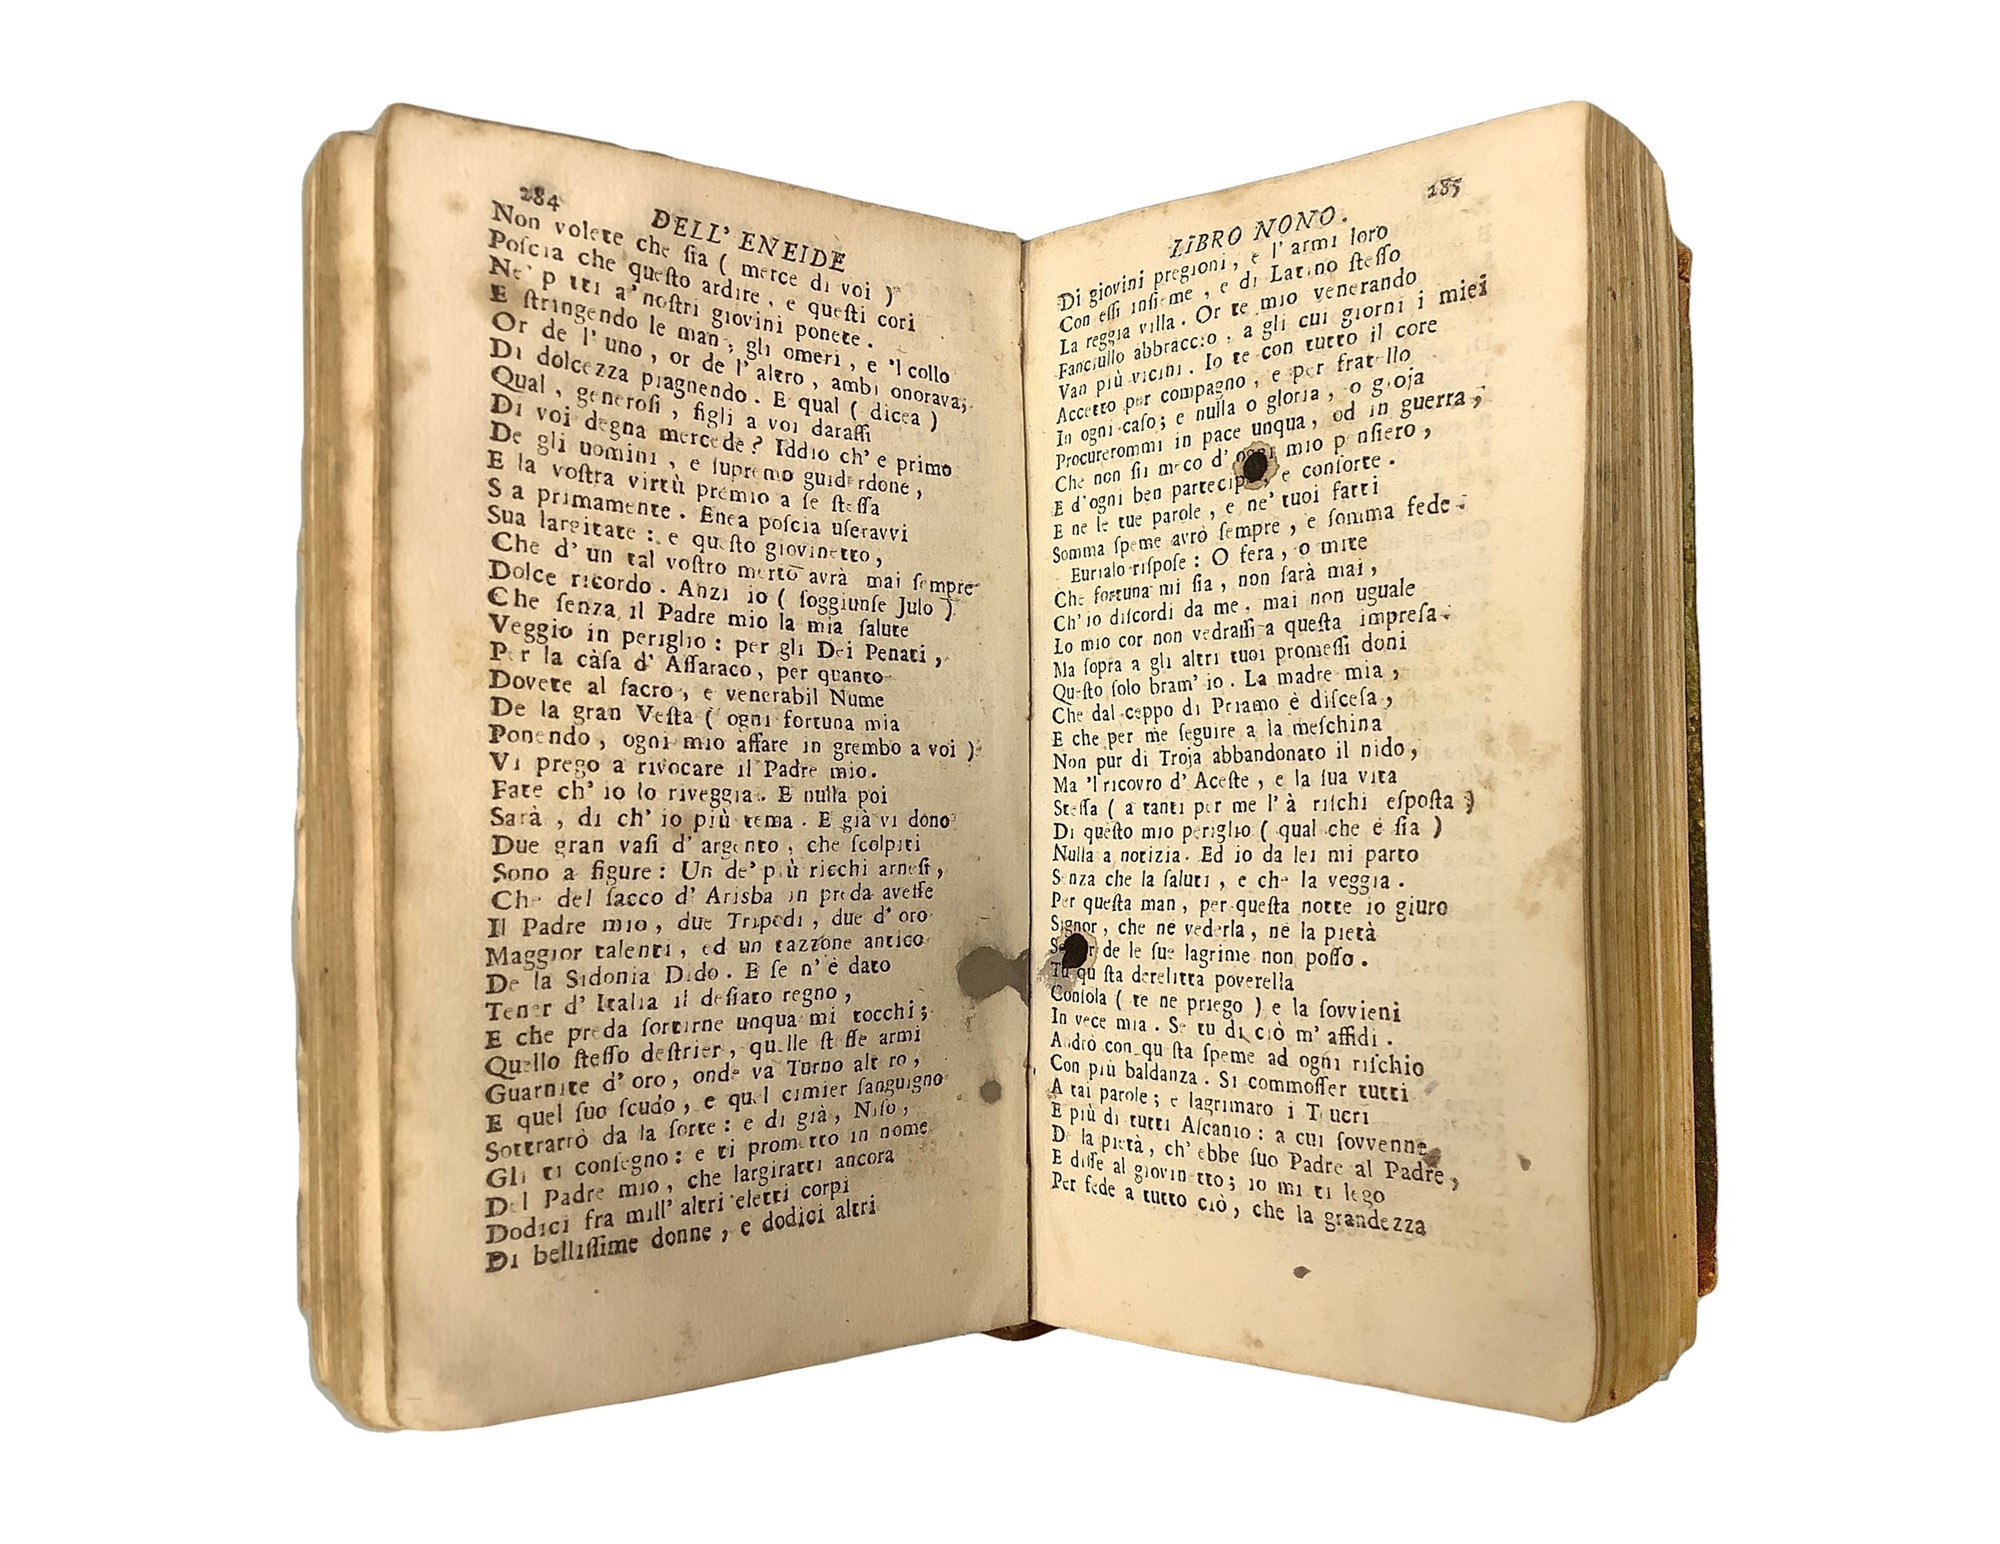 284
DELL' ENEIDE
Non volete che ſia ( merce di voi )
Poſcia che queſto ardire, e queſti cori
Ne' petti a' noſtri giovini ponete.
E ſtringendo le man, gli omeri, e 'l collo
Or de l' uno, or de l' altro, ambi onorava,
Di dolcezza piagnendo. E qual ( dicea )
Qual, generoſi, figli a voi daraſſi
Di voi degna mercede? Iddio ch' e primo
De gli uomini, e ſupremo guiderdone,
E la voſtra virtù premio a ſe ſteſſa
Sia primamente. Enea poſcia uſeravvi
Sua largitate: e queſto giovinetto,
Che d' un tal voſtro merto avrà mai ſempre
Dolce ricordo. Anzi io ( ſoggiunſe Julo )
Che ſenza il Padre mio la mia ſalute
Veggio in periglio: per gli Dei Penati,
Per la càſa d' Aſſaraco, per quanto
Dovete al ſacro, e venerabil Nume
De la gran Veſta ( ogni fortuna mia
Ponendo, ogni mio affare in grembo a voi )
Vi prego a rivocare il Padre mio.
Fate ch' io lo riveggia. E nulla poi
Sarà, di ch' io più tema. E già vi dono
Due gran vaſi d' argento, che ſcolpiti
Sono a figure: Un de' più ricchi arneſi,
Che del ſacco d' Arisba in preda aveſſe
Il Padre mio, due Tripodi, due d' oro
Maggior talenti, ed un tazzone antico
De la Sidonia Dido. E ſe n' è dato
Tener d' Italia il deſiato regno,
E che preda ſortirne unqua mi tocchi;
Quello ſteſſo deſtrier, quelle ſteſſe armi
Guarnite d' oro, onde va Turno altero,
E quel ſuo ſcudo, e quel cimier ſanguigno
Sottrarrò da la ſorte: e di già, Niſo,
Gli ti conſegno: e ti prometto in nome
Del Padre mio, che largiratti ancora
Dodici fra mill' altri eletti corpi
Di belliſſime donne, e dodici altri
285
LIBRO NONO.
Di giovini pregioni, e l' armi loro
Con eſſi inſieme, e di Latino ſteſſo
La reggia villa. Or te mio venerando
Fanciullo abbraccio, a gli cui giorni i miei
Van più vicini. Io te con tutto il core
Accetto per compagno, e per fratello
In ogni caſo; e nulla o gloria, o gioja
Procurerommi in pace unqua, od in guerra,
Che non ſii meco d' ogni mio penſiero,
E d' ogni ben partecipe, e conſorte.
E ne le tue parole, e ne' tuoi fatti
Somma ſpeme avrò ſempre, e ſomma fede.
Eurialo riſpoſe: O fera, o mite
Che fortuna mi ſia, non ſarà mai,
Ch' io diſcordi da me, mai non uguale
Lo mio cor non vedraſſi a queſta impreſa.
Ma ſopra a gli altri tuoi promeſſi doni
Queſto ſolo bram' io. La madre mia,
Che dal ceppo di Priamo è diſceſa,
E che per me ſeguire a la meſchina
Non pur di Troja abbandonato il nido,
Ma 'l ricovro d' Aceſte, e la ſua vita
Steſſa ( a tanti per me l' à riſchi eſpoſta )
Di queſto mio periglio ( qual che e ſia )
Nulla a notizia. Ed io da lei mi parto
Senza che la ſaluti, e che la veggia.
Per queſta man, per queſta notte io giuro
Signor, che ne vederla, ne la pietà
de le ſue lagrime non poſſo.
Tu queſta derelitta poverella
Conſola ( te ne priego ) e la ſovvieni
In vece mia. Se tu di ciò m' affidi.
Andrò con queſta ſpeme ad ogni riſchio
Con più baldanza. Si commoſſer tutti
A tai parole; e lagrimaro i Teucri
E più di tutti Aſcanio: a cui ſovvenne
De la pietà, ch' ebbe ſuo Padre al Padre,
E diſſe al giovinetto; io mi ti lego
Per fede a tutto ciò, che la grandezza